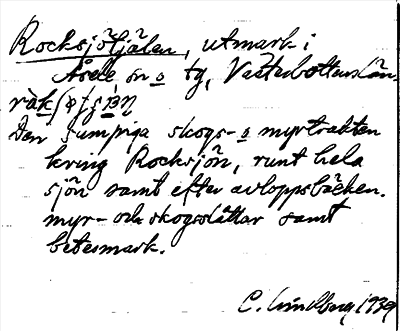 Rocksjöliden, utmark i
Åsele sn o tg, Västerbottens län.
Den sumpiga skogs- o myrtrakten
kring Rocksjön, runt hela
sjön samt efter avloppsbäcken.
myr- och skogsslåttar samt
betesmark.
C. Lindberg 1939